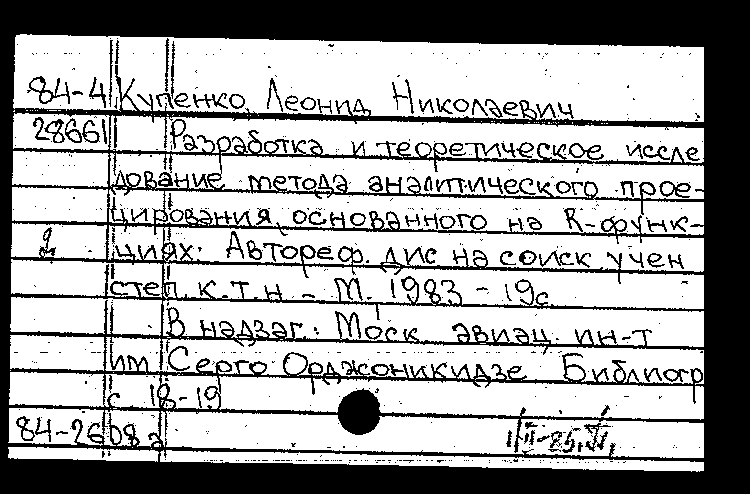 84-4 Купенко, Леонид Николаевич
28661 Разработка и теоретическое иссле
дование метода аналитического прое-
цирования, основанного на R-функ-
2 циях: Автореф. дис на соиск. учен
степ. к.т.н - М., 1983 - 19с
В надзаг.: Моск. авиац. ин-т
им Серго Орджоникидзе Библиогр
с 18-19
84-2608а